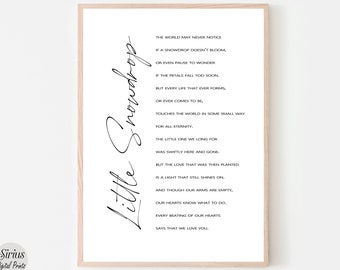 Little Snowdrop
THE WORLD MAY NEVER NOTICE
IF A SNOWDROP DOESN'T BLOOM,
OR EVEN PAUSE TO WONDER
IF THE PETALS FALL TOO SOON.
BUT EVERY LIFE THAT EVER FORMS,
OR EVER COMES TO BE,
TOUCHES THE WORLD IN SOME SMALL WAY
FOR ALL ETERNITY.
THE LITTLE ONE WE LONG FOR
WAS SWIFTLY HERE AND GONE.
BUT THE LOVE THAT WAS THEN PLANTED
IS A LIGHT THAT STILL SHINES ON.
AND THOUGH OUR ARMS ARE EMPTY,
OUR HEARTS KNOW WHAT TO DO.
EVERY BEATING OF OUR HEARTS
SAYS THAT WE LOVE YOU.
Sirius
Digital Prints